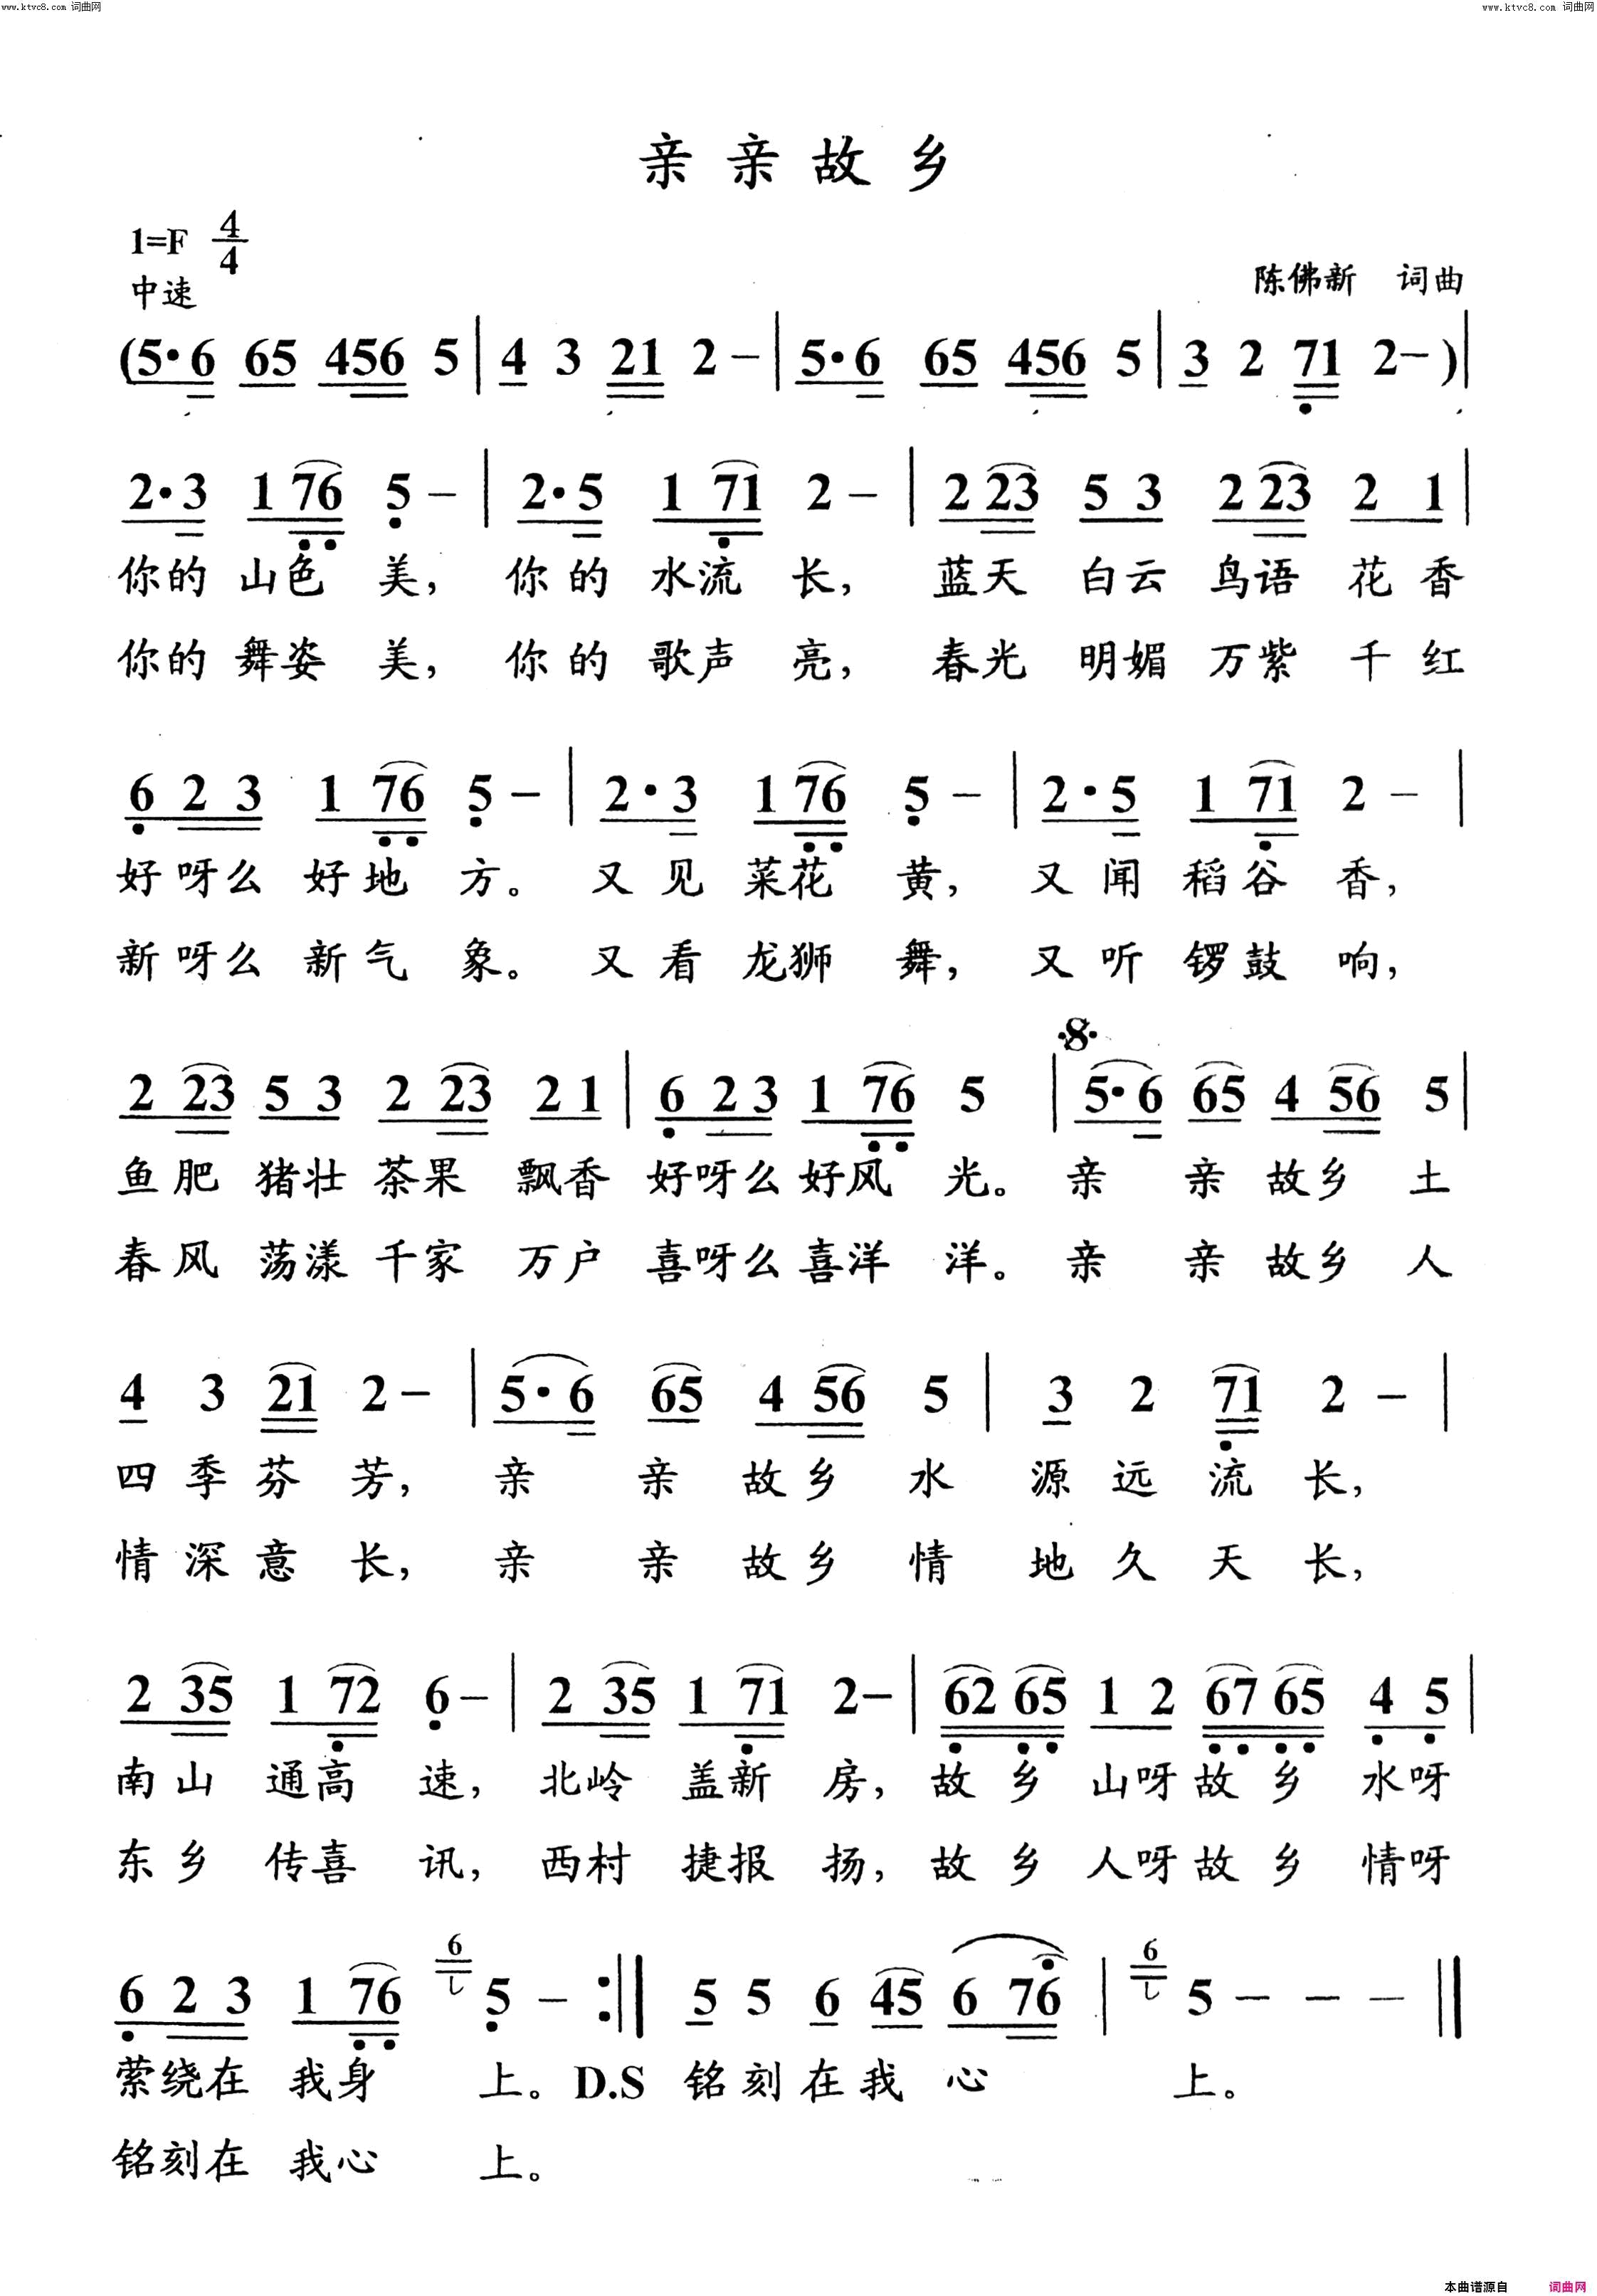 www.ktvc8.com 词曲网 www.ktvc8.com 词曲网
亲亲故乡
1=F 4/4
中速
陈佛新 词曲
(5·6 65 456 5 | 4 3 21 2 - | 5·6 65 456 5 | 3 2 71 2 - )|
2·3 1 76 5 - | 2·5 1 71 2 - | 2 23 5 3 2 23 2 1 |
你的 山色 美， 你的 水流 长， 蓝天 白云 鸟语 花香
你的 舞姿 美， 你的 歌声 亮， 春光 明媚 万紫 千红
6 2 3 1 76 5 - | 2·3 1 76 5 - | 2·5 1 71 2 - |
好呀么 好地 方。 又见 菜花 黄， 又闻 稻谷 香，
新呀么 新气 象。 又看 龙狮 舞， 又听 锣鼓 响，
2 23 5 3 2 23 2 1 | 6 2 3 1 76 5 | 5·6 65 4 56 5 |
鱼肥 猪壮 茶果 飘香 好呀么好风 光。 亲 亲 故乡 土
春风 荡漾 千家 万户 喜呀么喜洋 洋。 亲 亲 故乡 人
4 3 21 2 - | 5·6 65 4 56 5 | 3 2 71 2 - |
四季芬 芳， 亲 亲 故乡 水 源远流长，
情深意 长， 亲 亲 故乡 情 地久天长，
2 35 1 72 6 - | 2 35 1 71 2 - | 62 65 1 2 67 65 4 5 |
南山 通高 速， 北岭 盖新 房， 故乡 山呀故乡 水呀
东乡 传喜 讯， 西村 捷报 扬， 故乡 人呀故乡 情呀
6 2 3 1 76 6 5 - :‖ 5 5 6 45 6 76 | 6 5 - - - ‖
萦绕在 我身 上。 D.S 铭刻在我 心 上。
铭刻在 我心 上。
本曲谱源自 词曲网